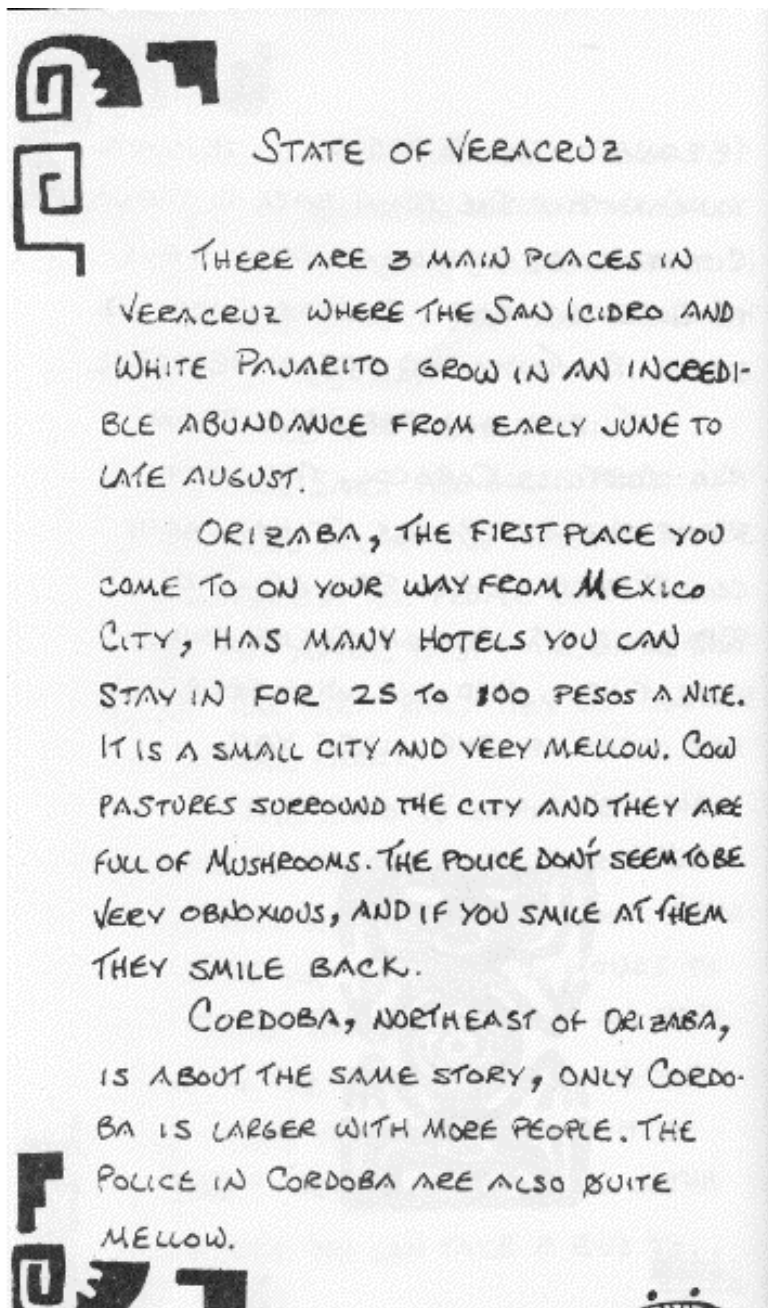 STATE OF VERACRUZ
THERE ARE 3 MAIN PLACES IN
VERACRUZ WHERE THE SAN ICIDRO AND
WHITE PAJARITO GROW IN AN INCREDI-
BLE ABUNDANCE FROM EARLY JUNE TO
LATE AUGUST.
ORIZABA, THE FIRST PLACE YOU
COME TO ON YOUR WAY FROM MEXICO
CITY, HAS MANY HOTELS YOU CAN
STAY IN FOR 25 TO 100 PESOS A NITE.
IT IS A SMALL CITY AND VERY MELLOW. COW
PASTURES SURROUND THE CITY AND THEY ARE
FULL OF MUSHROOMS. THE POLICE DON'T SEEM TO BE
VERY OBNOXIOUS, AND IF YOU SMILE AT THEM
THEY SMILE BACK.
CORDOBA, NORTHEAST OF ORIZABA,
IS ABOUT THE SAME STORY, ONLY CORDO-
BA IS LARGER WITH MORE PEOPLE. THE
POLICE IN CORDOBA ARE ALSO QUITE
MELLOW.